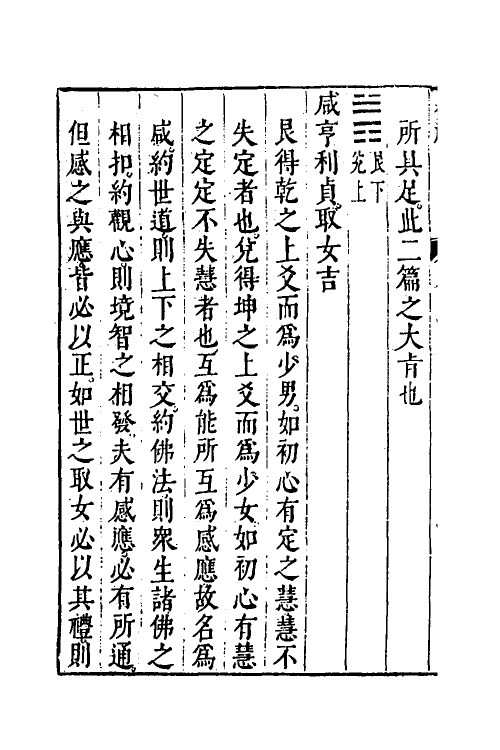 所具足。此二篇之大旨也
䷞艮下兌上
咸亨利貞。取女吉
艮得乾之上爻而爲少男。如初心有定之慧慧不
失定者也。兌得坤之上爻而爲少女如初心有慧
之定定不失慧者也互爲能所互爲感應故名爲
咸。約世道。則上下之相交。約佛法則衆生諸佛之
相扣。約觀心。則境智之相發。夫有感應。必有所通。
但感之與應皆必以正。如世之取女必以其禮。則